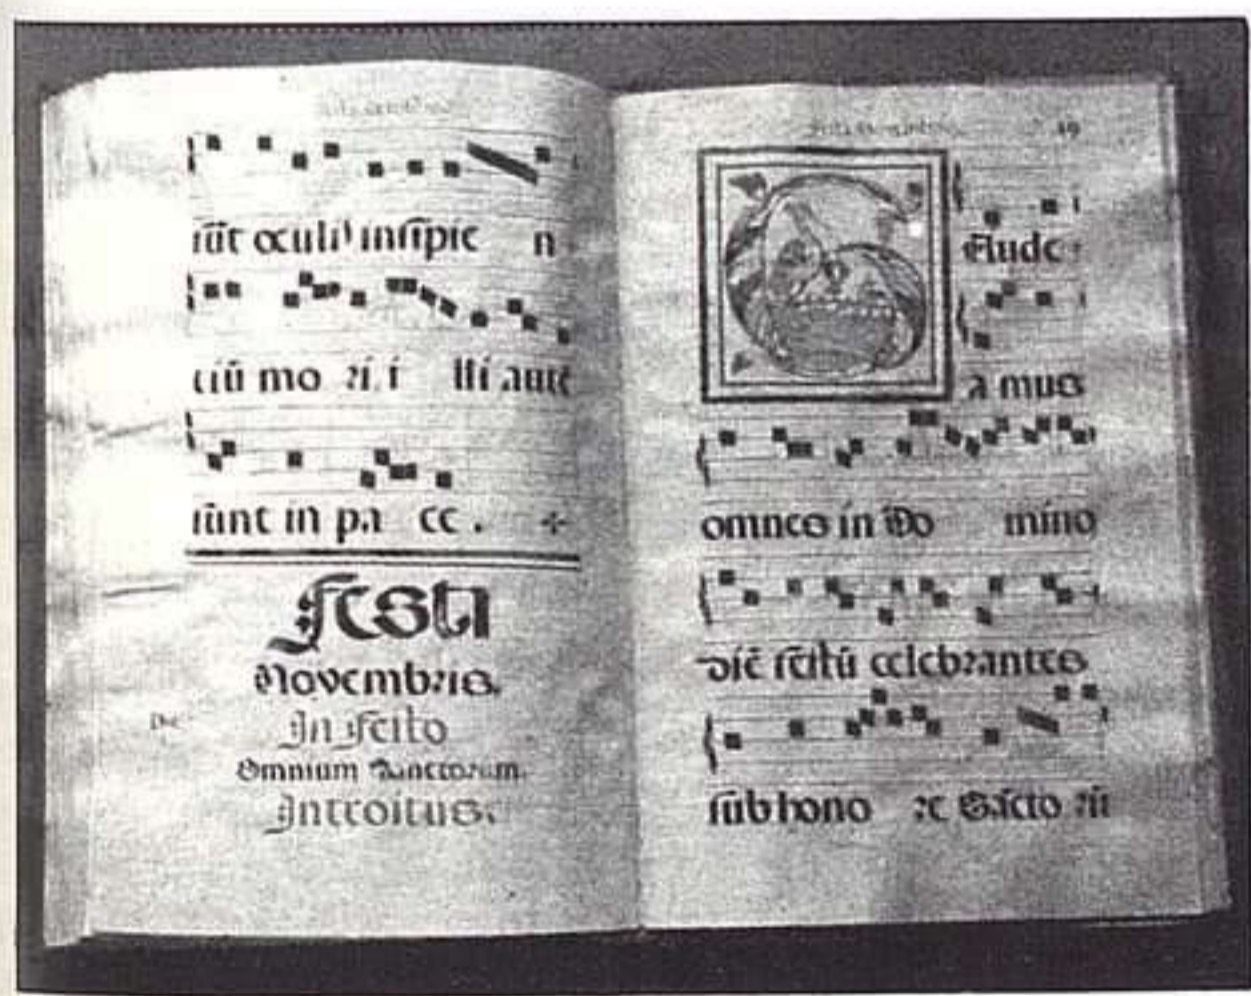 sūt oculis insipie n
tiū mo ri. i lli autē
sūnt in pa ce.
Festa
Novembris.
In festo
Omnium Sanctorum.
Introitus.
19
GAude
a mus
omnes in Do mino
diē festū celebrantes
sub hono re Sācto rū